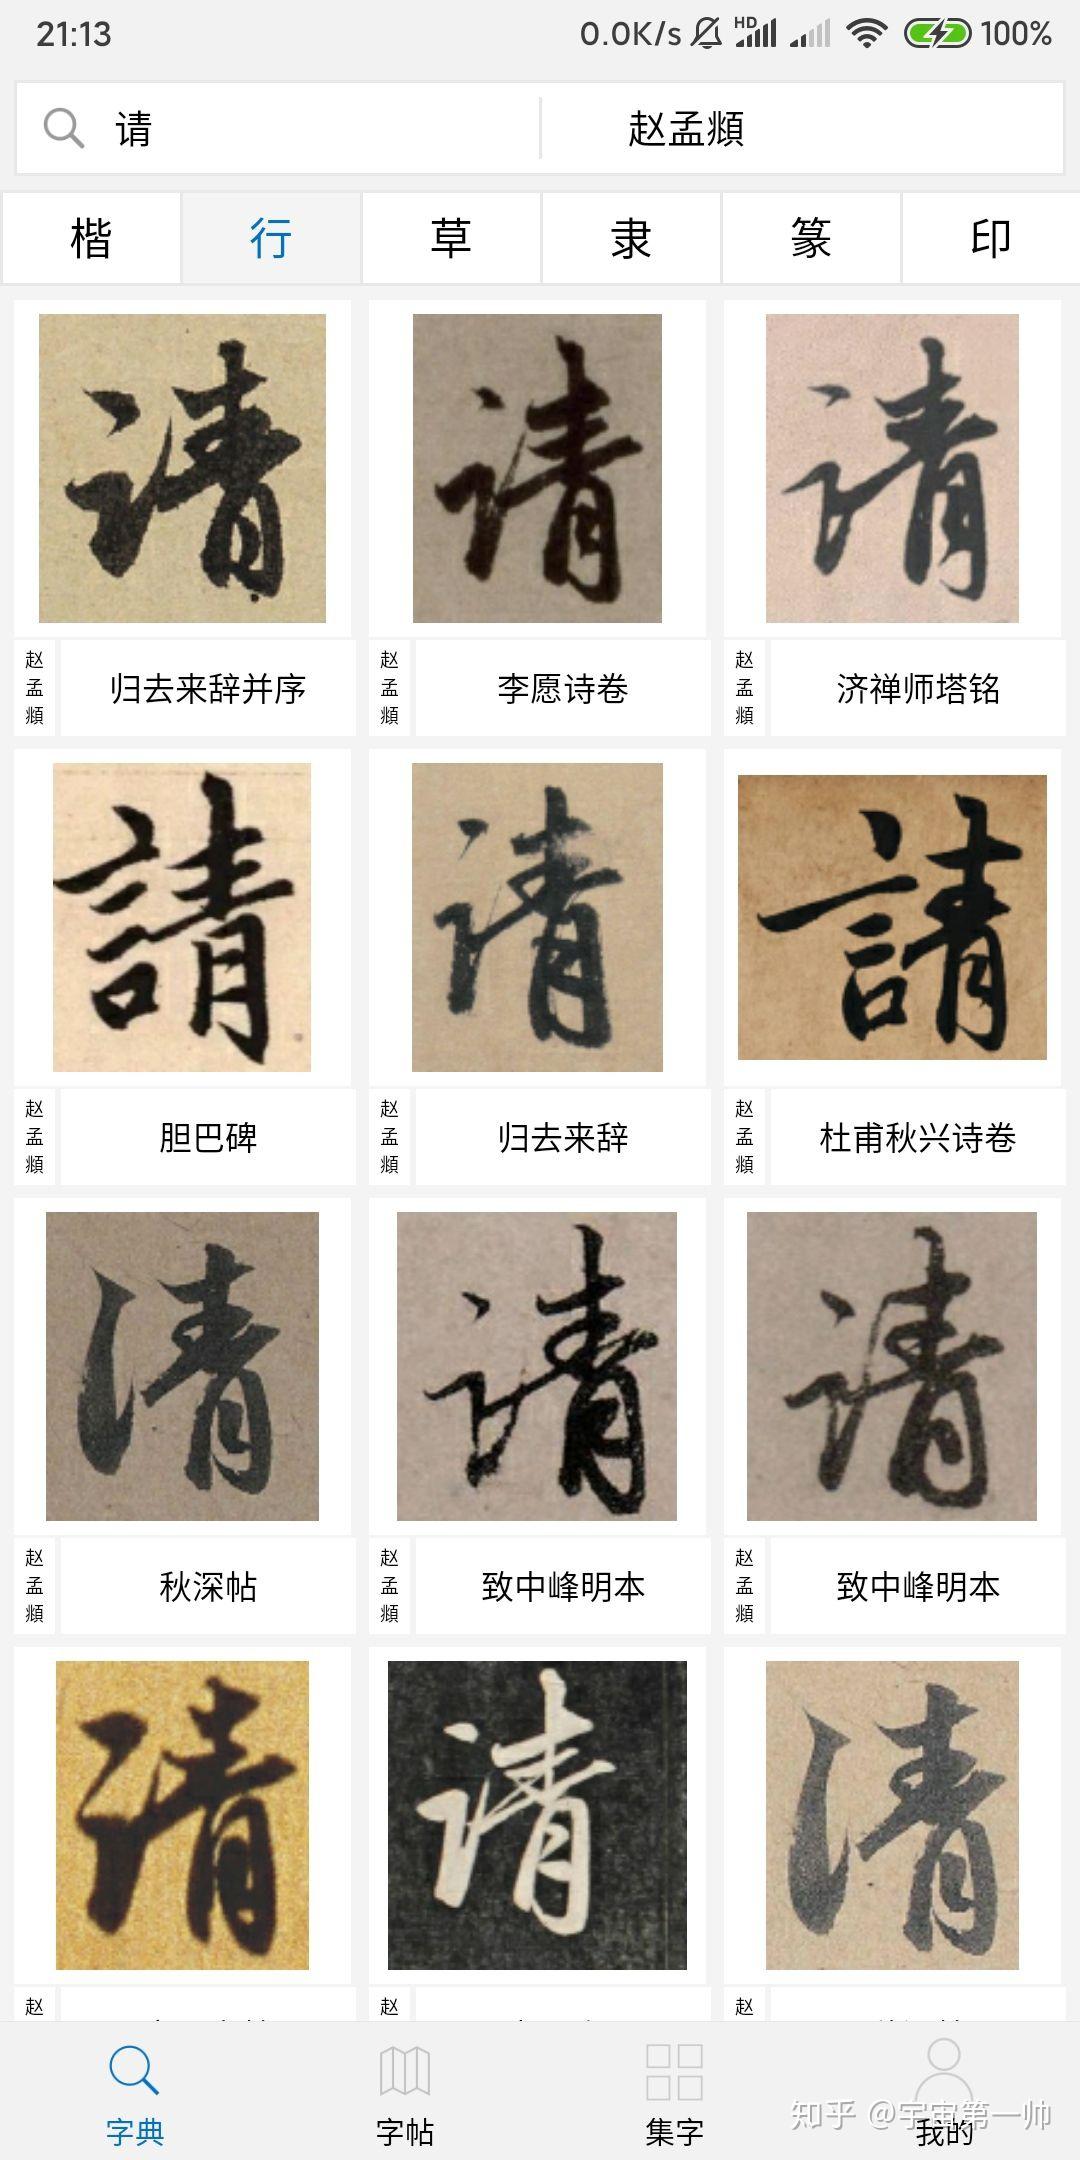 21:13 0.0K/s HD 100%
请 赵孟頫
楷 行 草 隶 篆 印
请 请 请
赵孟頫 归去来辞并序 赵孟頫 李愿诗卷 赵孟頫 济禅师塔铭
請 请 請
赵孟頫 胆巴碑 赵孟頫 归去来辞 赵孟頫 杜甫秋兴诗卷
请 请 请
赵孟頫 秋深帖 赵孟頫 致中峰明本 赵孟頫 致中峰明本
请 请 请
赵 赵 赵
字典 字帖 集字 我的
知乎 @宇宙第一帅